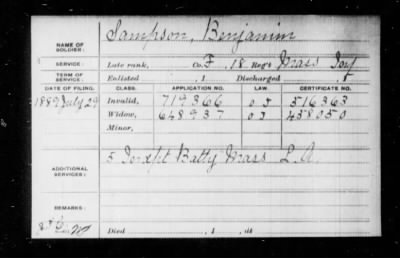 Sampson, Benjamin
NAME OF SOLDIER:
SERVICE: Late rank, Co. F, 18 Reg't Mass Inf
TERM OF SERVICE: Enlisted , 1 Discharged , 1
DATE OF FILING. CLASS. APPLICATION NO. LAW. CERTIFICATE NO.
1889 July 29 Invalid, 719366 516363
Widow, 648937 458050
Minor,
ADDITIONAL SERVICES: 5 Batty Mass L.A.
REMARKS:
Died , 1 , at